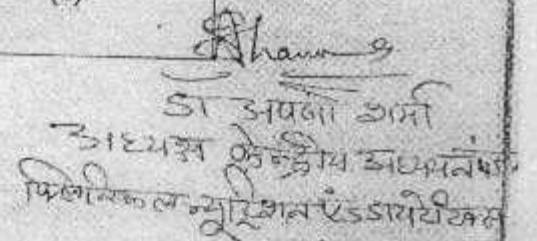 डॉ अपर्णा शर्मा
अध्यक्ष केन्द्रीय अध्ययन
क्लिनिकल न्यूट्रिशन एंड डायटेटिक्स